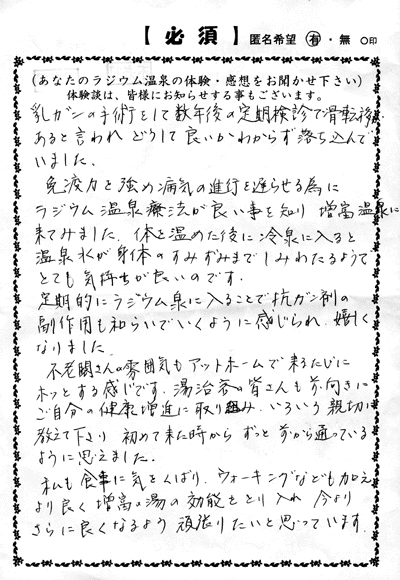 【必須】 匿名希望 有・無 ○印
(あなたのラジウム温泉の体験・感想をお聞かせ下さい)
体験談は、皆様にお知らせする事もございます。
乳ガンの手術をして数年後の定期検診で骨転移が
あると言われ どうして良いかわからず落ち込んで
いました。
免疫力を強め病気の進行を遅らせる為に
ラジウム温泉療法が良い事を知り 増富温泉に
来てみました。体を温めた後に冷泉に入ると
温泉水が身体のすみずみまでしみわたるようで
とても気持ちが良いのです。
定期的にラジウム泉に入ることで抗ガン剤の
副作用も和らいでいくように感じられ、嬉しく
なりました。
不老閣さんの雰囲気もアットホームで来るたびに
ホッとする感じです。湯治客の皆さんも前向きに
ご自分の健康増進に取り組み、いろいろ親切に
教えて下さり 初めて来た時から ずっと前から通っている
ように思えました。
私も食事に気をくばり、ウォーキングなども加え
より良く増富の湯の効能をとり入れ 今より
さらに良くなるよう 頑張りたいと思っています。